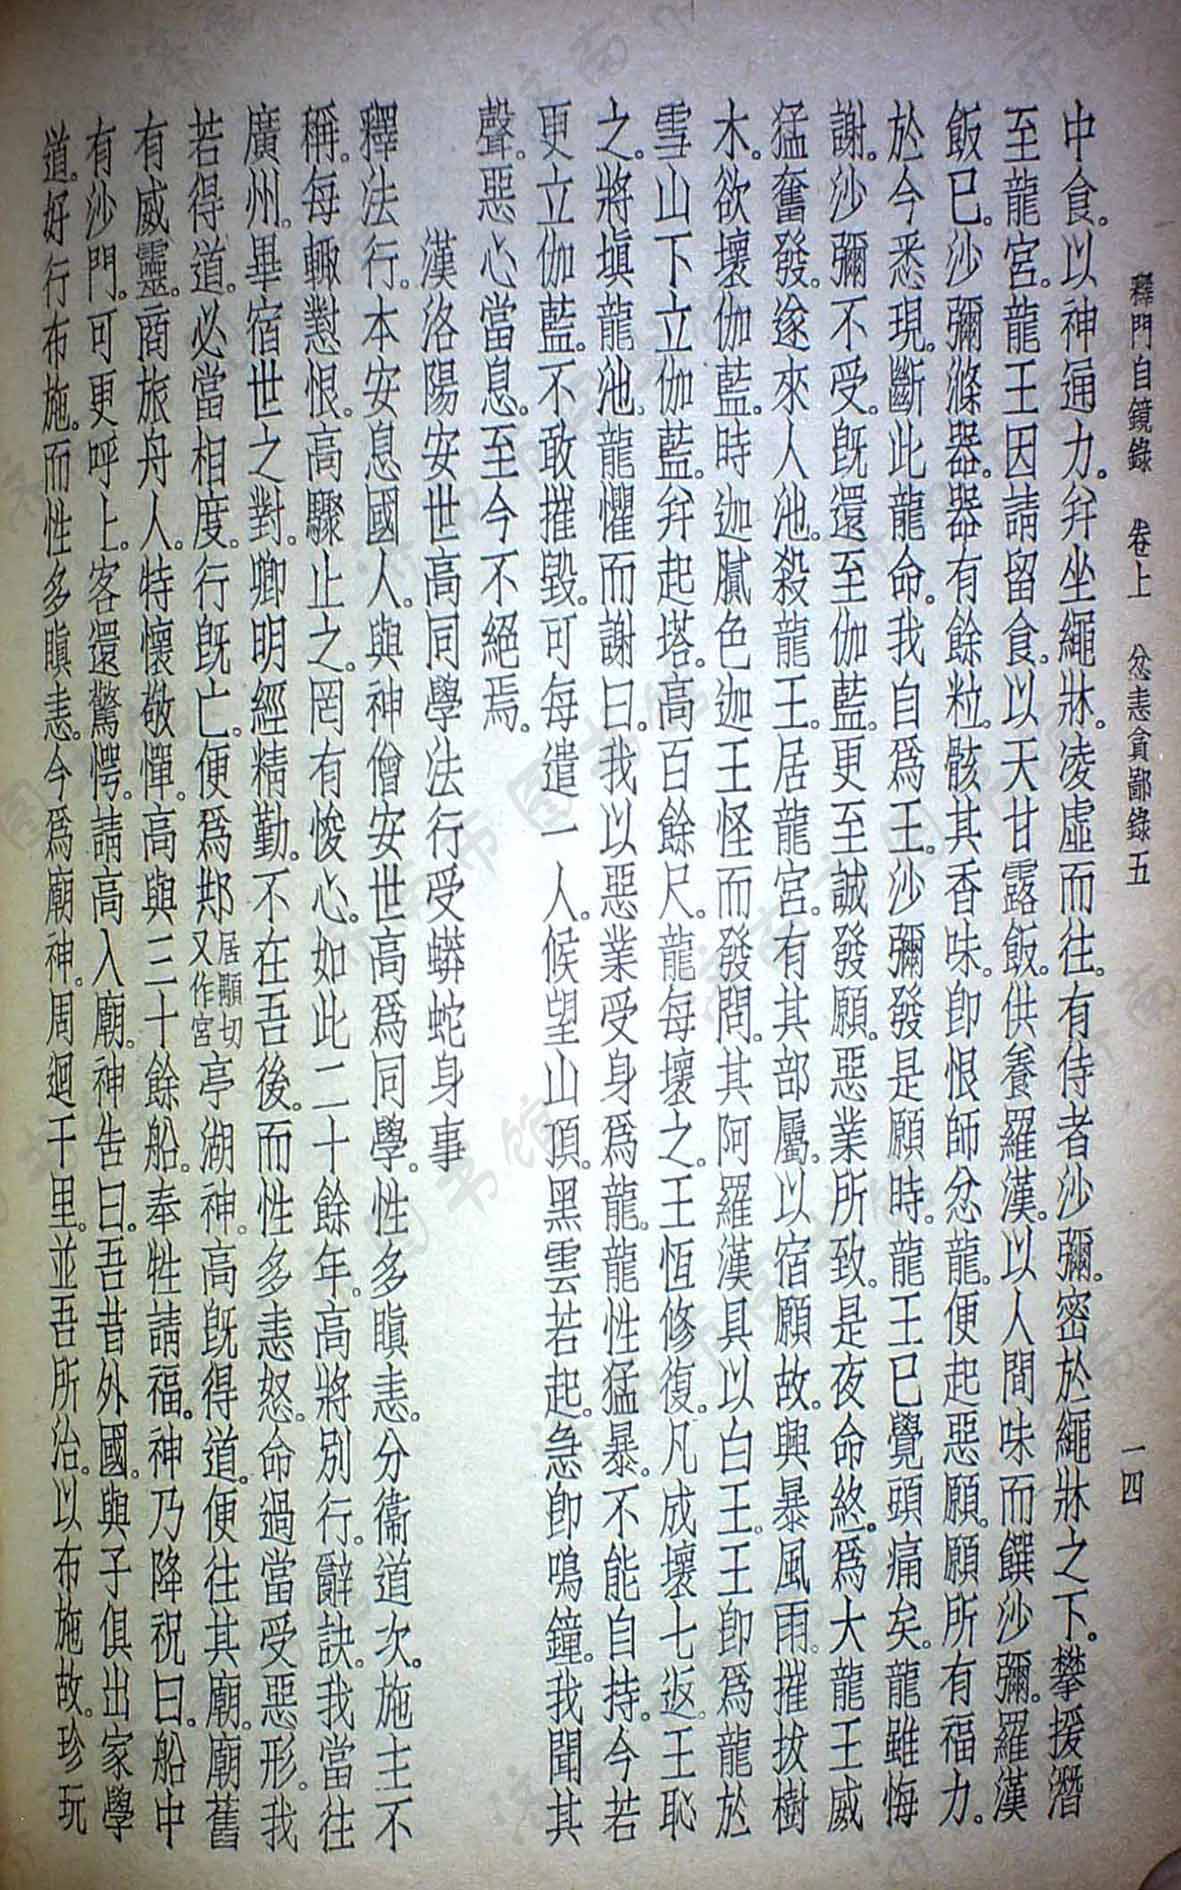 釋門自鏡錄　卷上　忿恚貪鄙錄五　一四
中食。以神通力。并坐繩牀。凌虛而往。有侍者沙彌。密於繩牀之下。攀援潛
至龍宮。龍王因請留食。以天甘露飯。供養羅漢。以人間味而饌沙彌。羅漢
飯已。沙彌滌器。器有餘粒。骸其香味。卽恨師忿龍。便起惡願。願所有福力。
於今悉現。斷此龍命。我自爲王。沙彌發是願時。龍王已覺頭痛矣。龍雖悔
謝。沙彌不受。旣還至伽藍。更至誠發願。惡業所致。是夜命終。爲大龍王威
猛奮發。遂來人池。殺龍王。居龍宮。有其部屬。以宿願故。興暴風雨。摧拔樹
木。欲壞伽藍。時迦膩色迦王怪而發問。其阿羅漢具以白王。王卽爲龍於
雪山下立伽藍。并起塔。高百餘尺。龍每壞之。王恆修復。凡成壞七返。王恥
之。將塡龍池。龍懼而謝曰。我以惡業受身爲龍。龍性猛暴。不能自持。今若
更立伽藍。不敢摧毀。可每遣一人。候望山頂。黑雲若起。急卽鳴鐘。我聞其
聲。惡心當息。至今不絕焉。
漢洛陽安世高同學法行受蟒蛇身事
釋法行。本安息國人。與神僧安世高爲同學。性多瞋恚。分衞道次。施主不
稱。每輙懟恨。高驟止之。罔有悛心。如此二十餘年。高將別行。辭訣。我當往
廣州。畢宿世之對。卿明經精勤。不在吾後。而性多恚怒。命過當受惡形。我
若得道。必當相度。行旣亡。便爲䢼居顒切又作宮亭湖神。高旣得道。便往其廟。廟舊
有威靈。商旅舟人。特懷敬憚。高與三十餘船。奉牲請福。神乃降祝曰。船中
有沙門。可更呼上。客還驚愕。請高入廟。神告曰。吾昔外國。與子俱出家學
道。好行布施。而性多瞋恚。今爲廟神。周迴千里。並吾所治。以布施故。珍玩